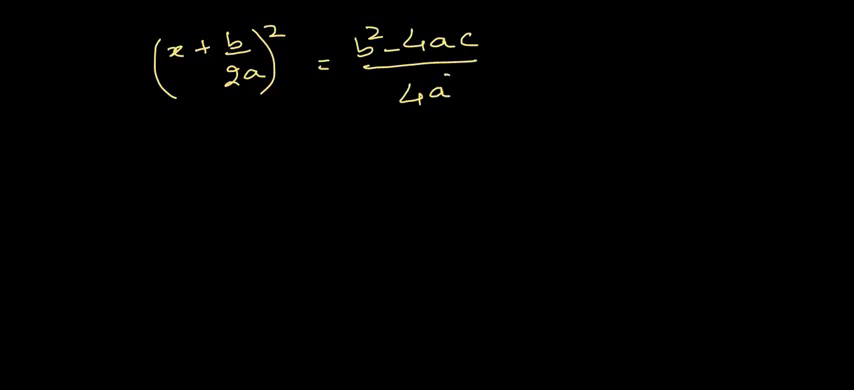 (x + b/2a)² = b² - 4ac / 4a